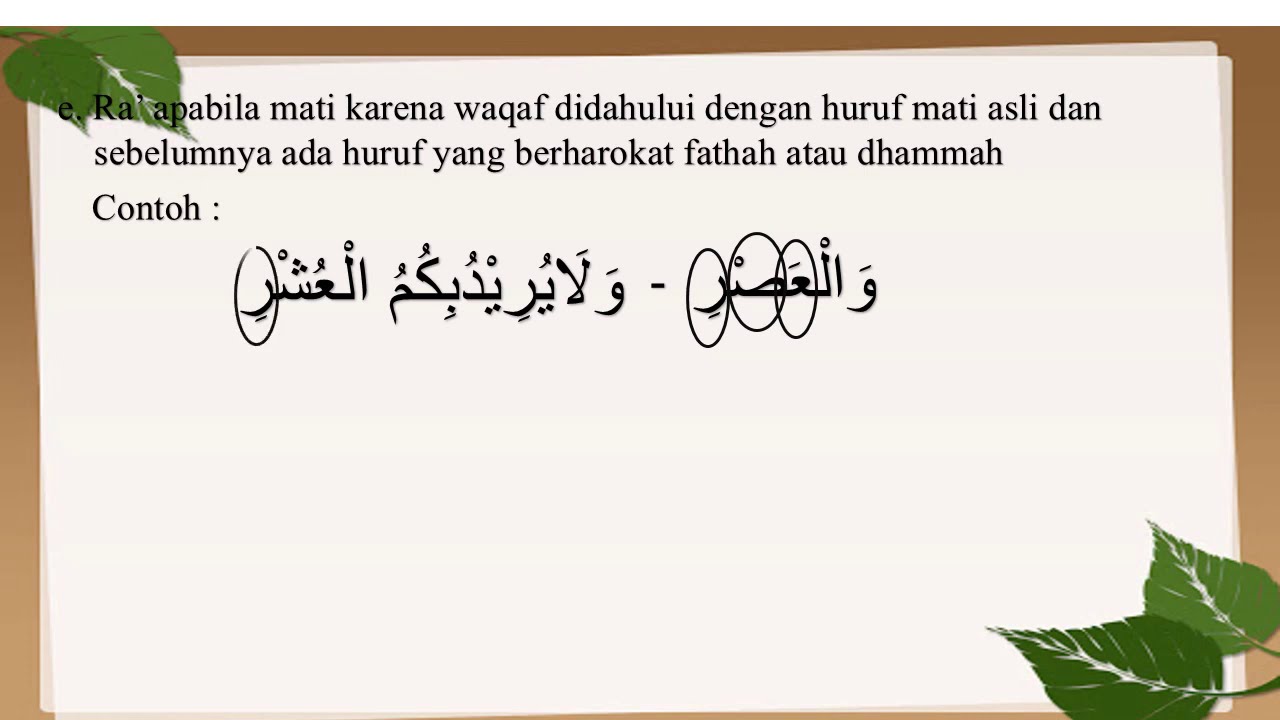 e. Ra’ apabila mati karena waqaf didahului dengan huruf mati asli dan
sebelumnya ada huruf yang berharokat fathah atau dhammah
Contoh :
وَالْعَصْرِ - وَلَايُرِيْدُبِكُمُ الْعُشْرِ